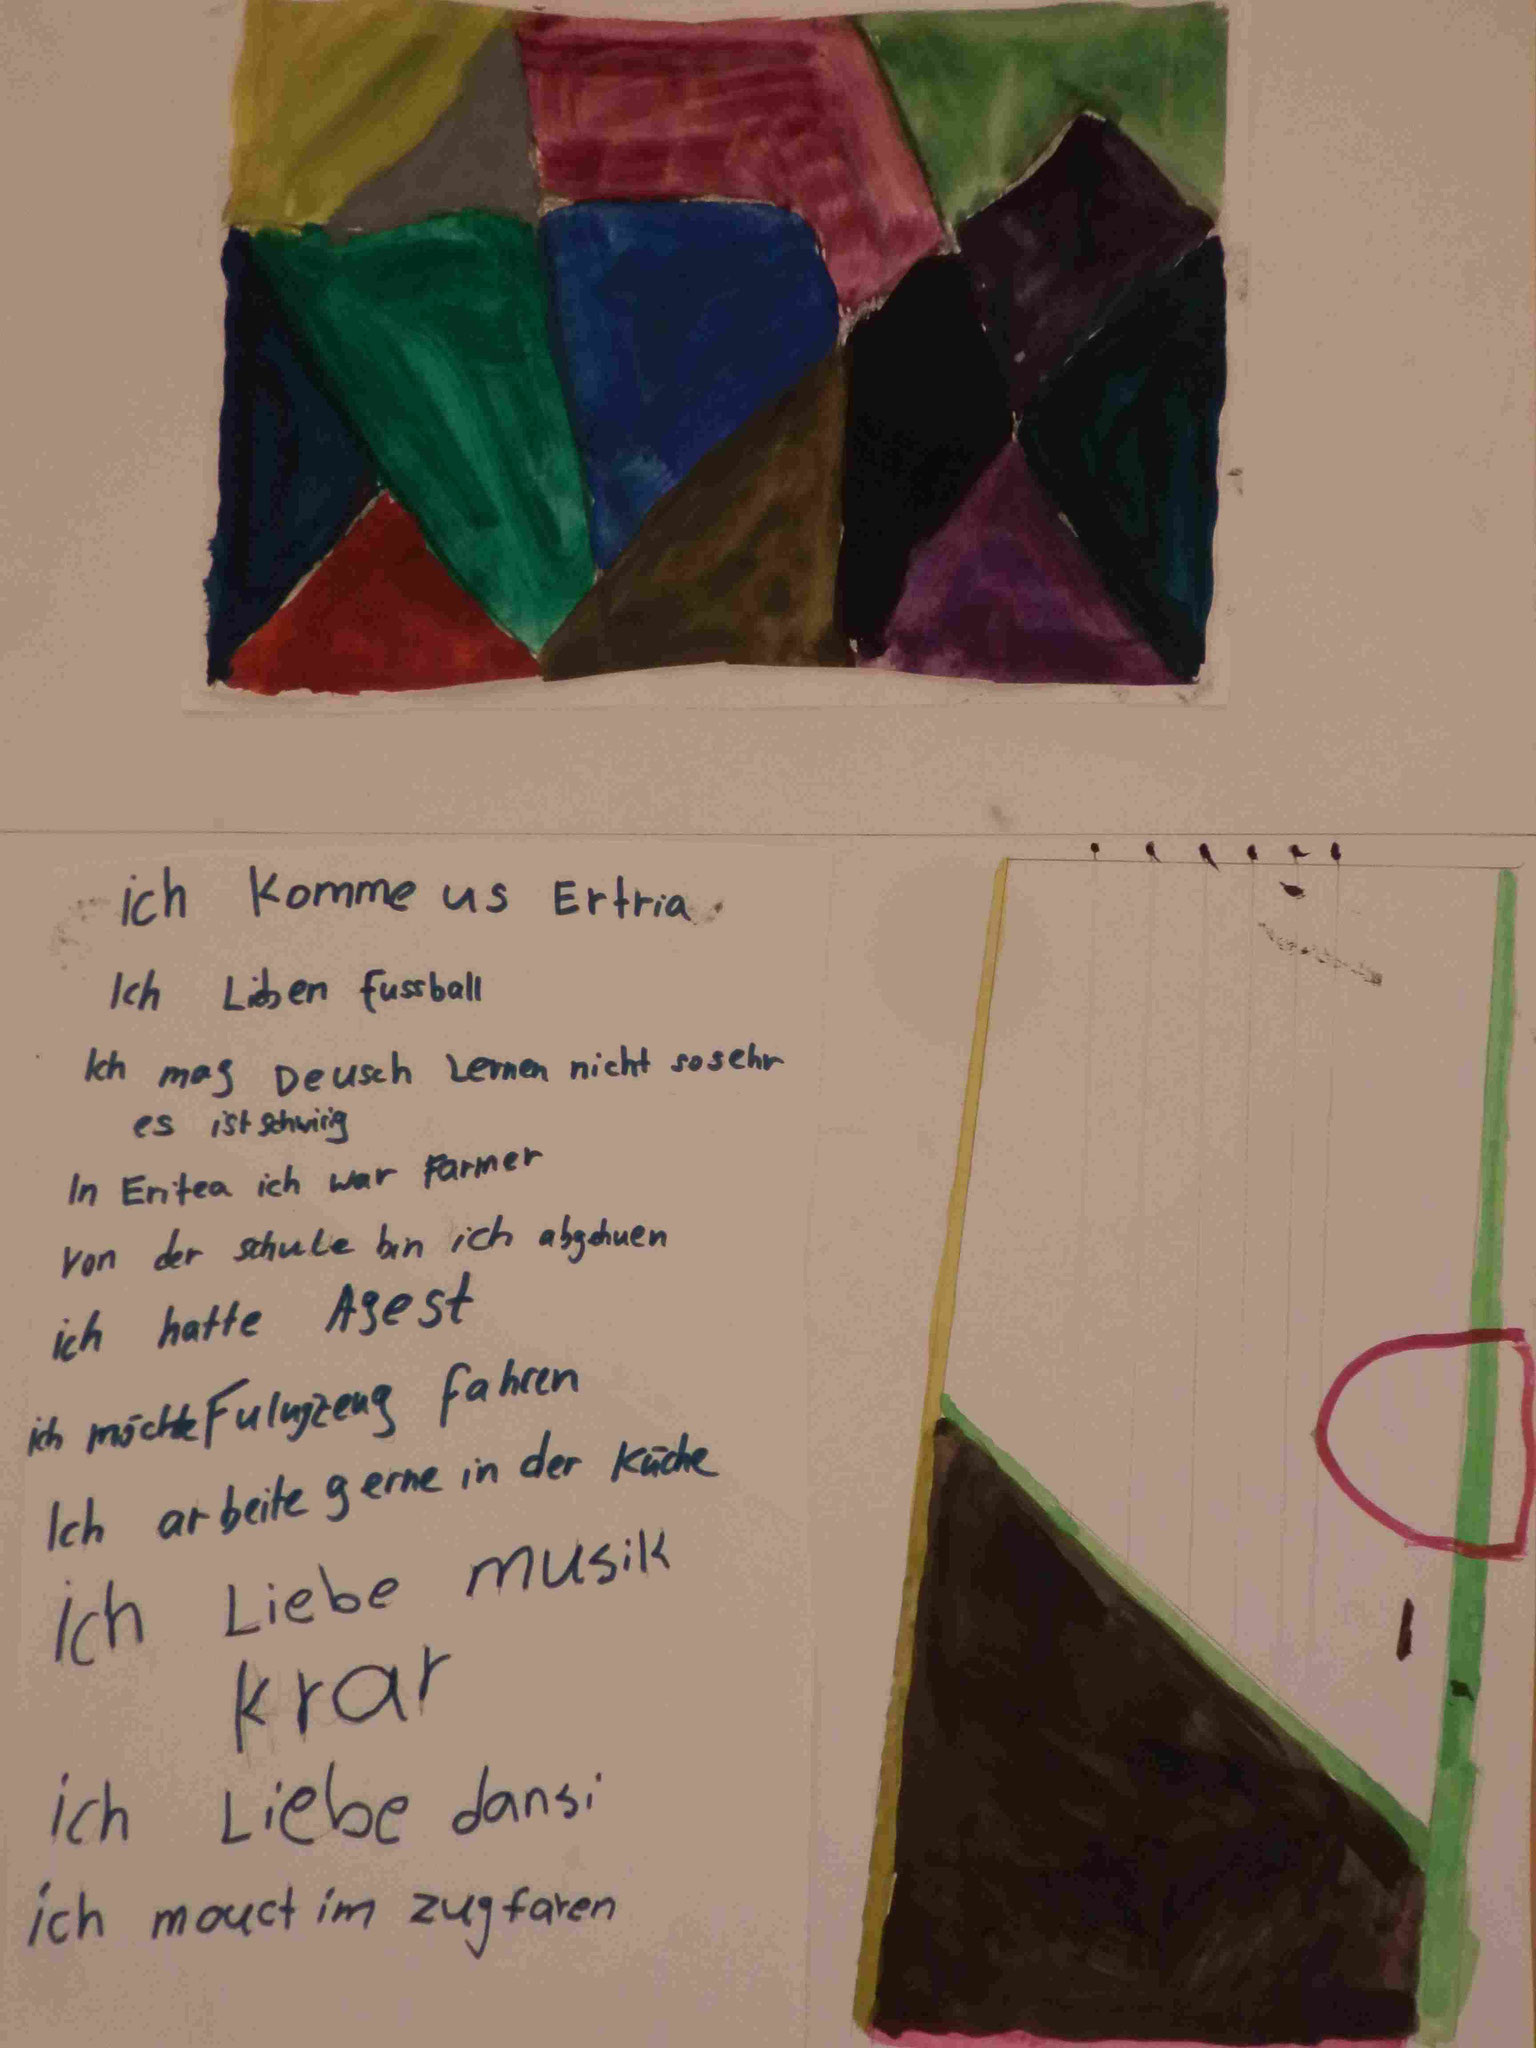 ich komme us Ertria.
Ich Lieben fussball
Ich mag Deusch Lernen nicht so sehr
es ist schwirig
In Eritea ich war Farmer
von der schule bin ich abgehuen
ich hatte Agest
ich möchte Fulugzeug fahren
Ich arbeite gerne in der Küche
ich Liebe musik
krar
ich Liebe dansi
ich mouct im zug faren